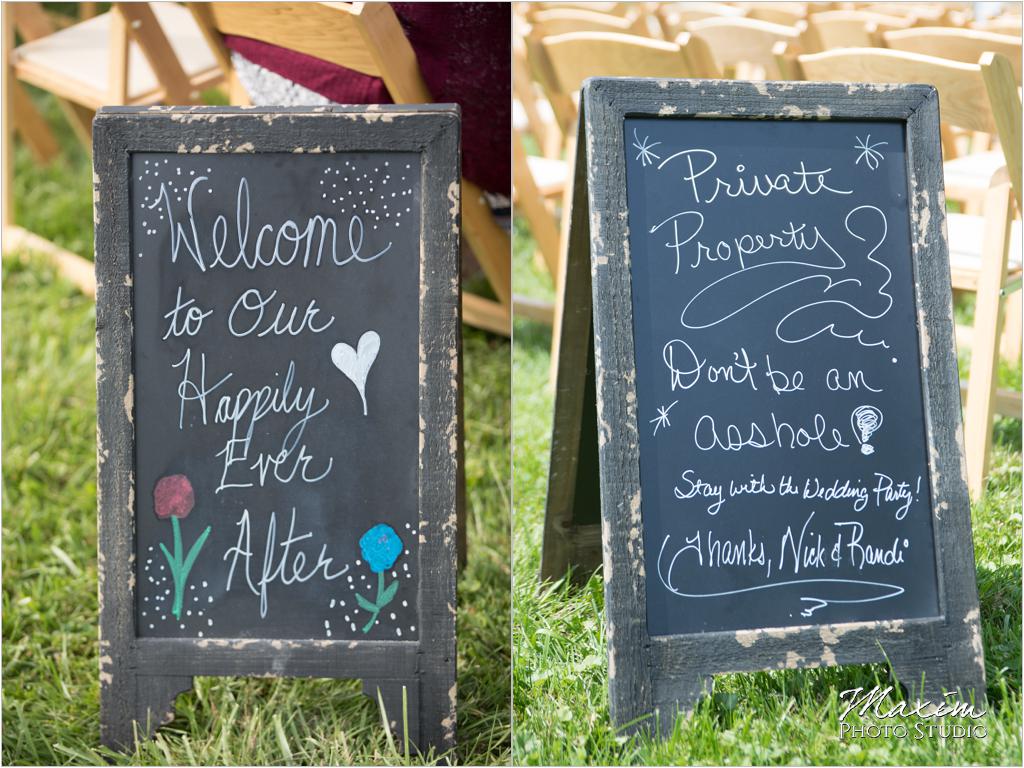 Welcome
to Our
Happily
Ever
After
Private
Property
Don't be an
Asshole!
Stay with the Wedding Party!
Thanks, Nick & Randi
Maxim
PHOTO STUDIO